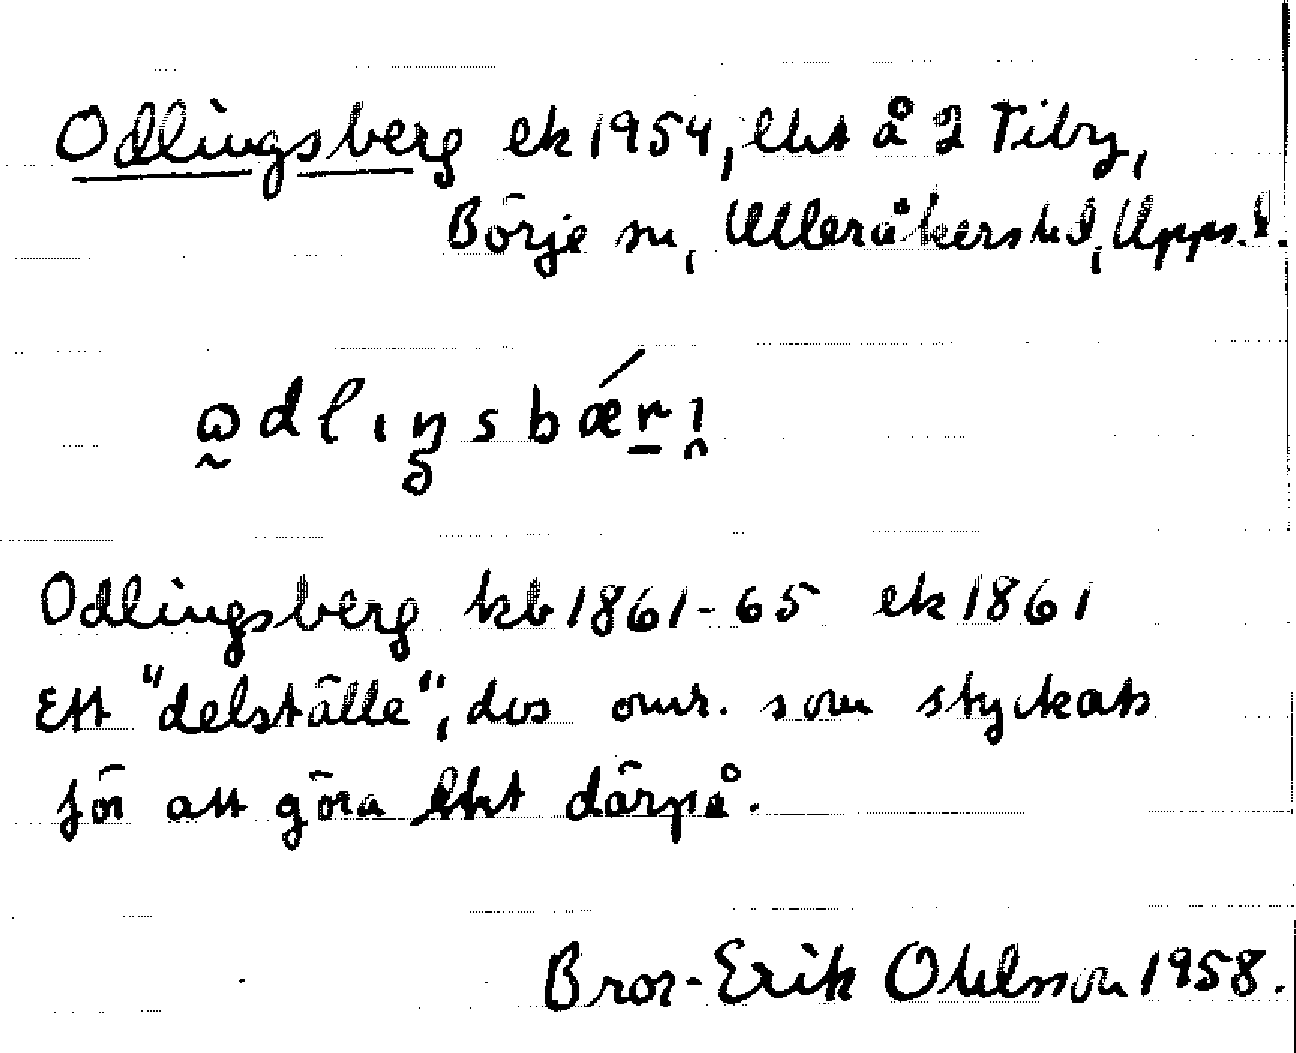 Odlingsberg ek 1954, lht å 2 Tiby,
Börje sn, Ulleråkers hd, Upps. l.
ɷdlıŋsbǽrı̯
Odlingsberg kb 1861-65 ek 1861
Ett "delställe", dvs omr. som styckats
för att göra lht därpå.
Bror-Erik Ohlsson 1958.